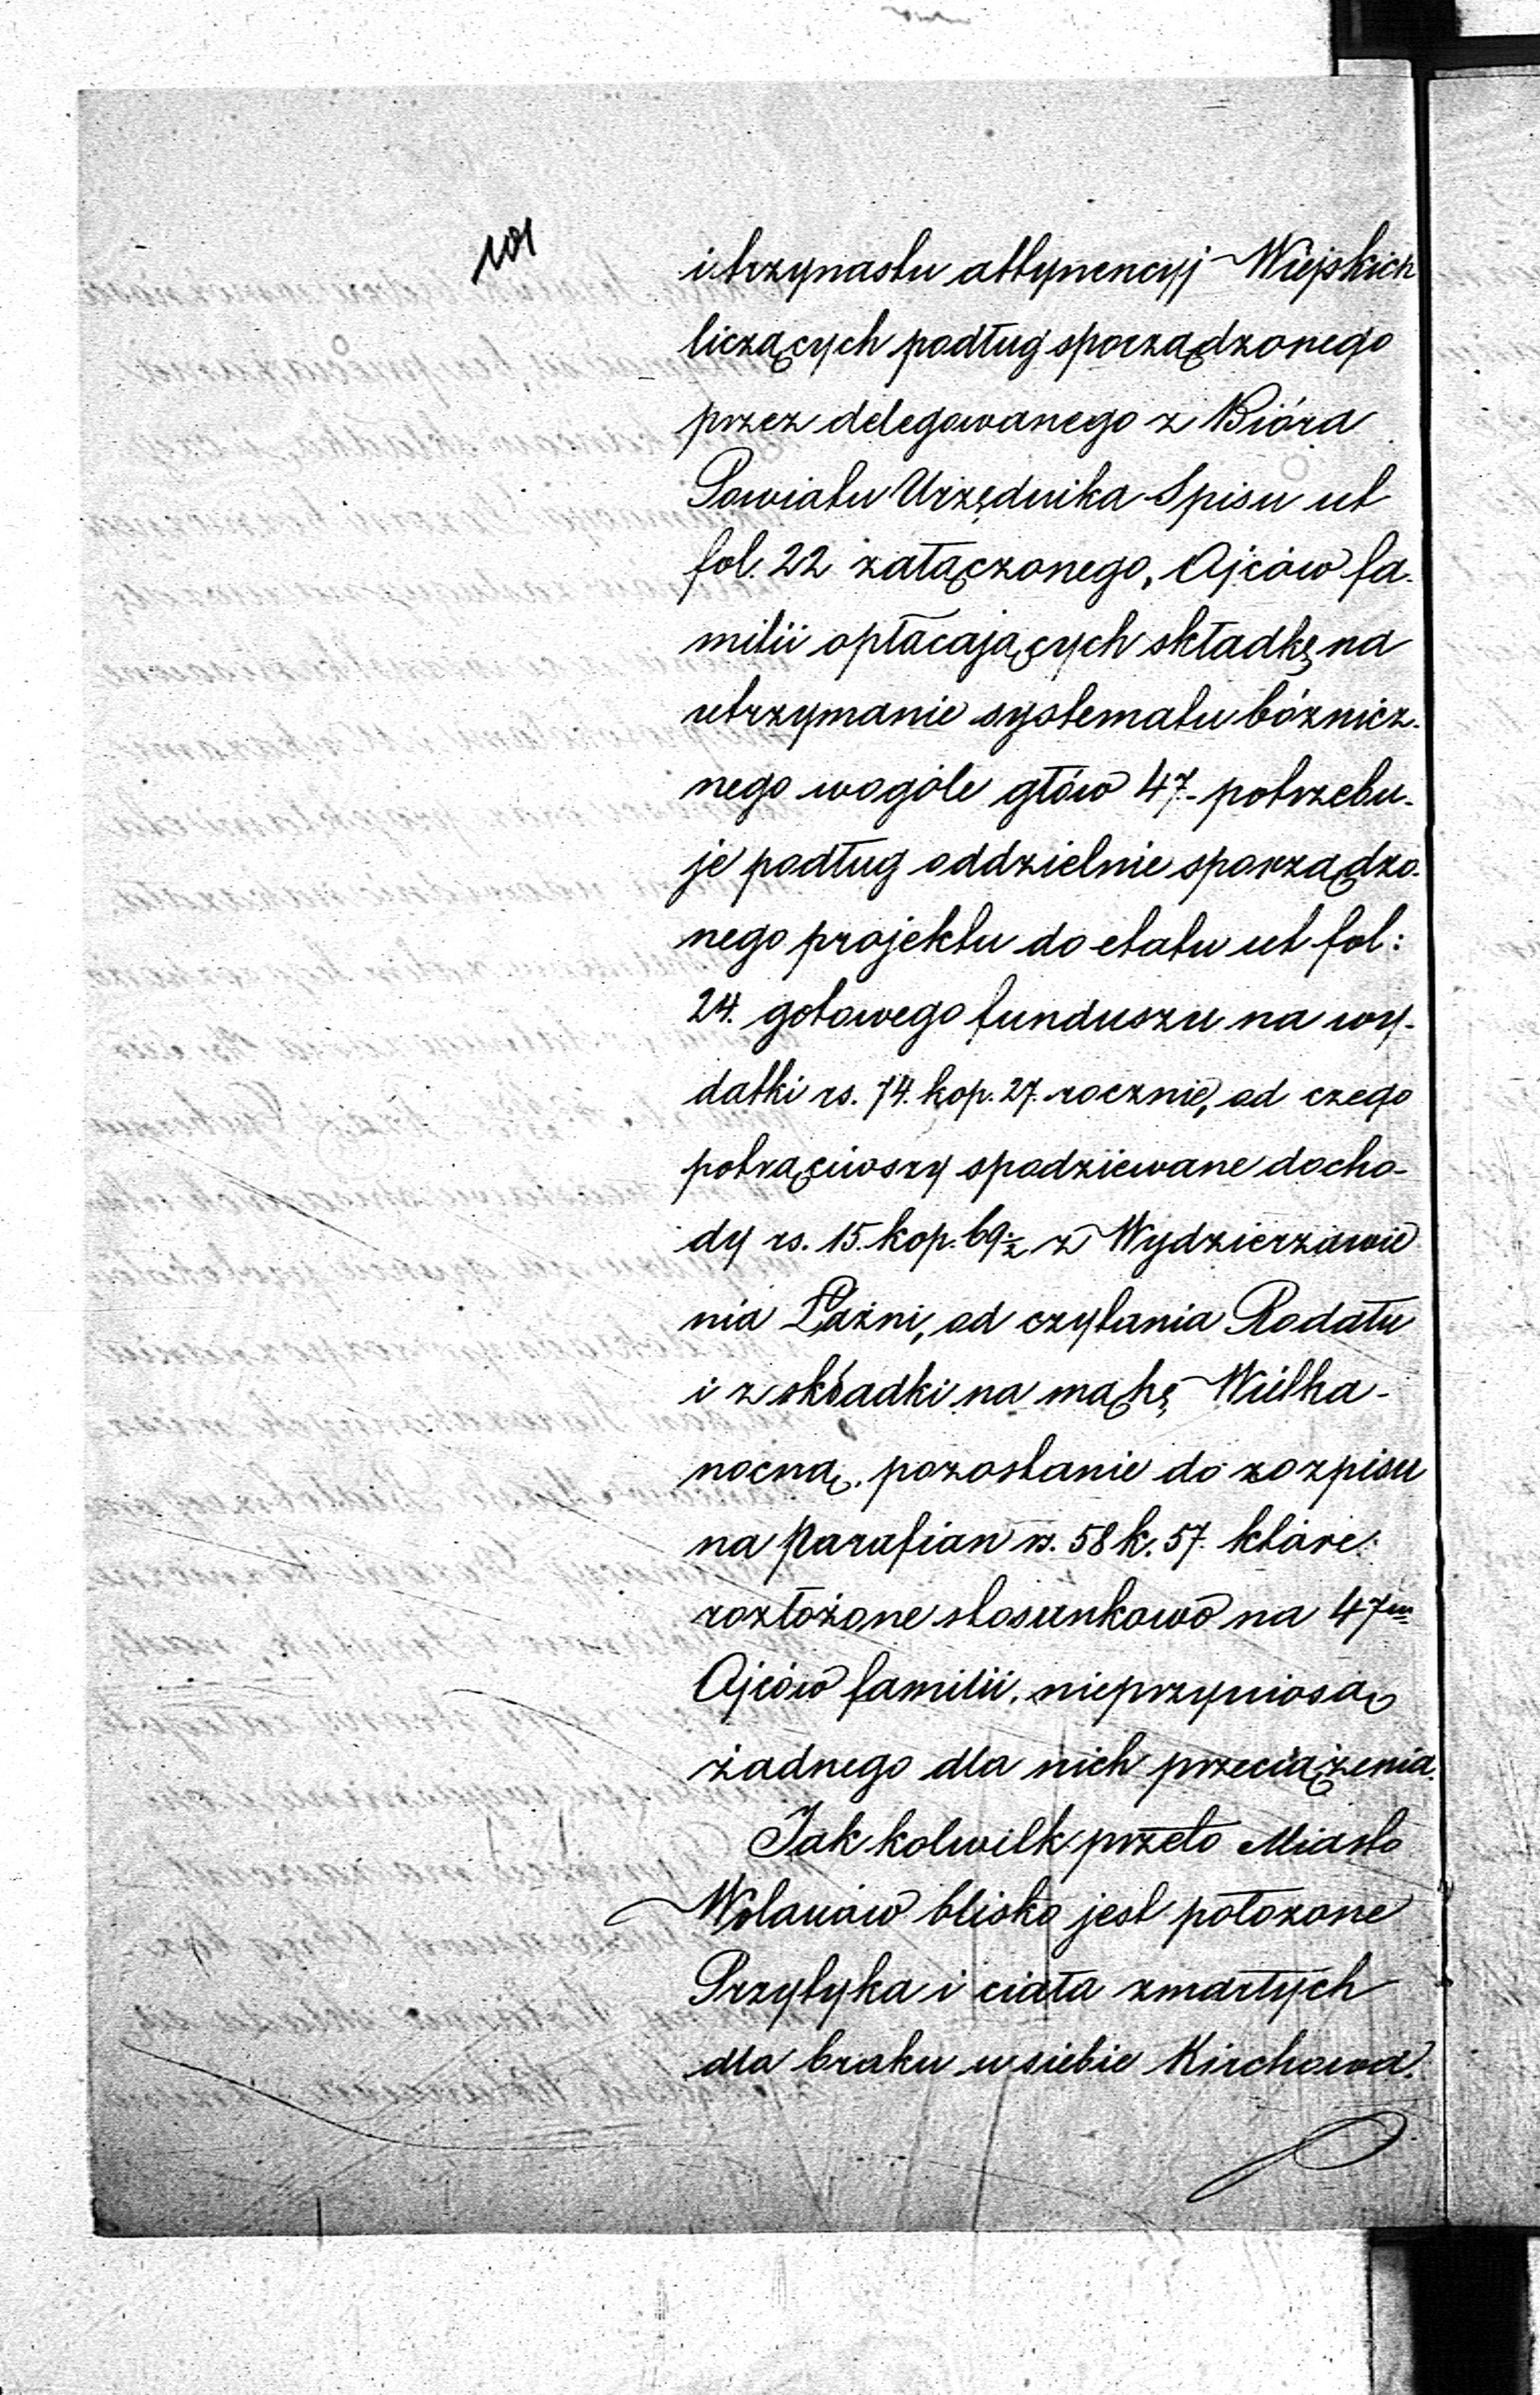 101
i trzynastu attynencyj Wiejskich
liczących podług sporządzonego
przez delegowanego z Bióra
Powiatu Urzędnika Spisu ut
fol. 22 załączonego, Ojców fa-
milii opłacających składkę na
utrzymanie systematu bóżnicz-
nego wogóle głów 47. potrzebu-
je podług oddzielnie sporządzo-
nego projektu do etatu ut fol:
24. gotowego funduszu na wy-
datki rs. 74. kop. 27. rocznie, od czego
potrąciwszy spodziewane docho-
dy rs. 15. kop. 69½ z Wydzierzawie
nia Łaźni, od czytania Rodału
i z składki na mąkę Wielka-
nocną. pozostanie do rozpisu
na Parafian rs. 58 k. 57. które
rozłożone stosunkowo na 47m
Ojców familii, nieprzyniosą
żadnego dla nich przeciążenia.
Jak kolwilk przeto Miasto
Wolanów blisko jest położone
Przytyka i ciała zmarłych
dla braku u siebie Kirchowa.